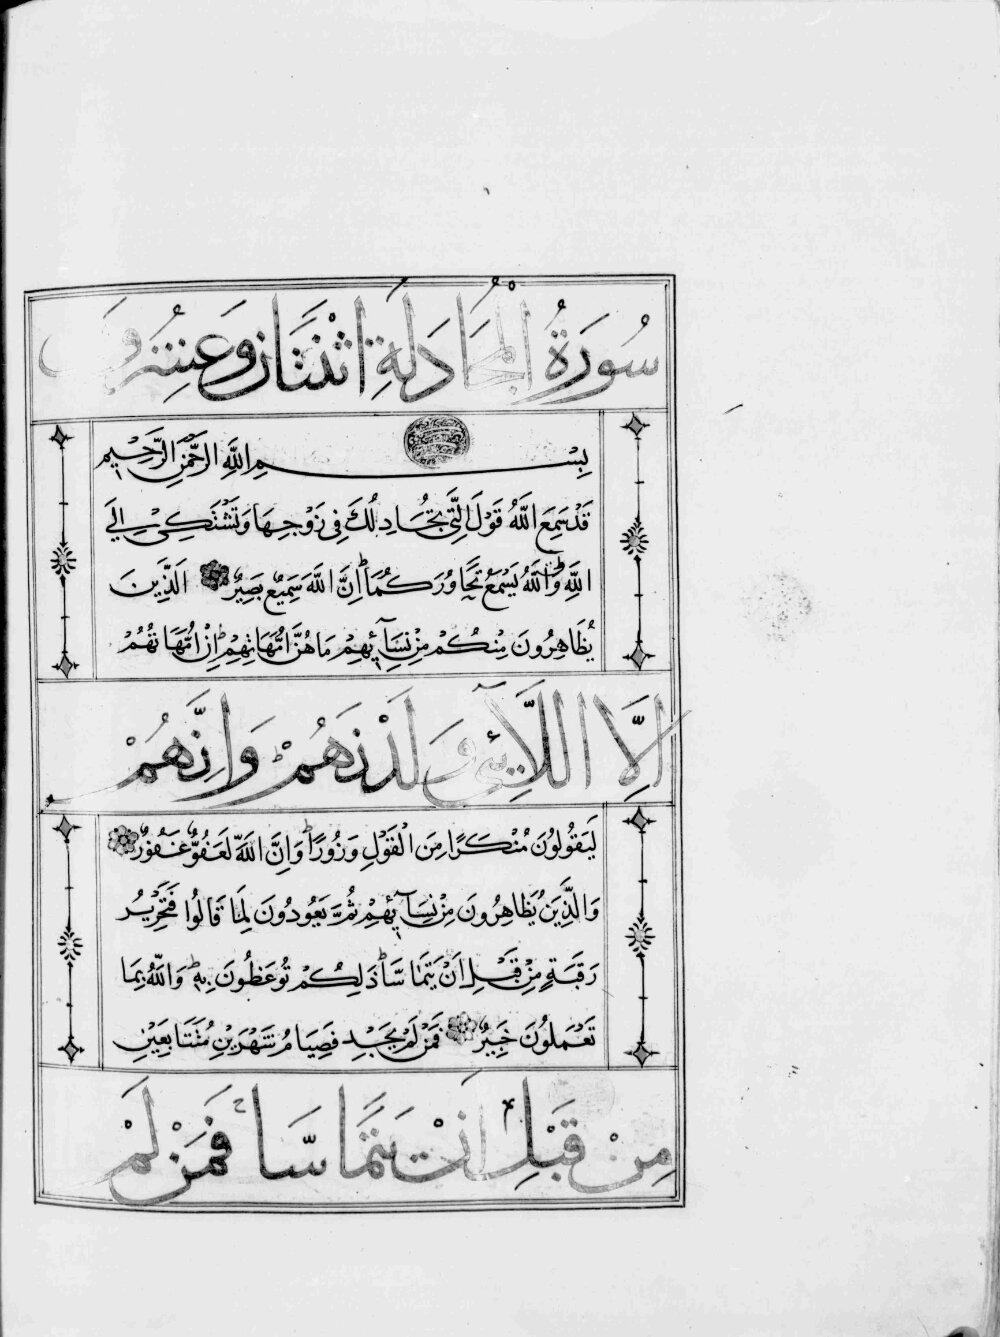 سُورَةُ الْمُجَادَلَةِ اثْنَتَانِ وَعِشْرُونَ
بِسْمِ اللَّهِ الرَّحْمَنِ الرَّحِيمِ
قَدْ سَمِعَ اللَّهُ قَوْلَ الَّتِي تُجَادِلُكَ فِي زَوْجِهَا وَتَشْتَكِي إِلَى
اللَّهِ وَاللَّهُ يَسْمَعُ تَحَاوُرَكُمَا إِنَّ اللَّهَ سَمِيعٌ بَصِيرٌ الَّذِينَ
يُظَاهِرُونَ مِنْكُمْ مِنْ نِسَآئِهِمْ مَا هُنَّ أُمَّهَاتِهِمْ إِنْ أُمَّهَاتُهُمْ
إِلَّا اللَّآئِي وَلَدْنَهُمْ وَإِنَّهُمْ
لَيَقُولُونَ مُنْكَرًا مِنَ الْقَوْلِ وَزُورًا وَإِنَّ اللَّهَ لَعَفُوٌّ غَفُورٌ
وَالَّذِينَ يُظَاهِرُونَ مِنْ نِسَآئِهِمْ ثُمَّ يَعُودُونَ لِمَا قَالُوا فَتَحْرِيرُ
رَقَبَةٍ مِنْ قَبْلِ أَنْ يَتَمَاسَّا ذَلِكُمْ تُوعَظُونَ بِهِ وَاللَّهُ بِمَا
تَعْمَلُونَ خَبِيرٌ فَمَنْ لَمْ يَجِدْ فَصِيَامُ شَهْرَيْنِ مُتَتَابِعَيْنِ
مِنْ قَبْلِ أَنْ يَتَمَاسَّا فَمَنْ لَمْ